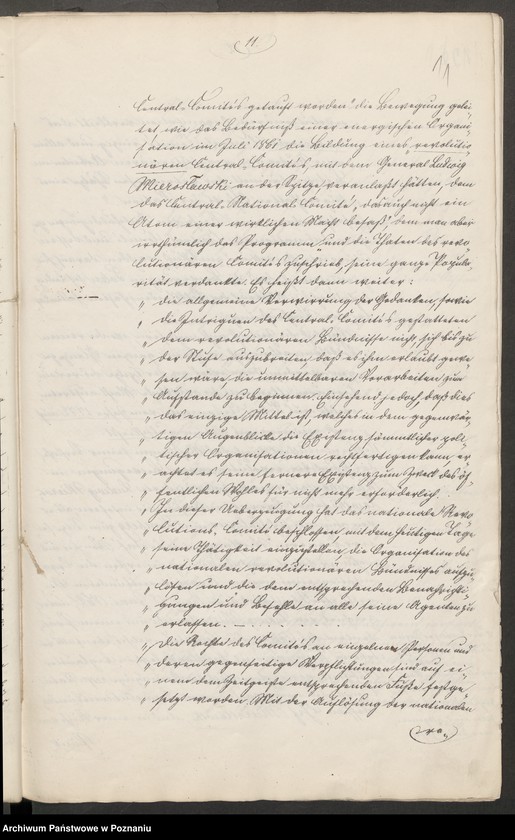 11.
11
Central-Comités getauft worden" die Bewegung gelei-
tet wie das Bedürfniß einer energischen Organi-
sation im Juli 1861 die Bildung eines revolutio-
nären Central-Comités, mit dem General Ludwig
Mieroslawski an der Spitze veranlaßt hätten, dem
das Central-National-Comité, das auch nicht ein
Atom einer wirklichen Macht besaß" dem man aber
irrthümlich das Programm und die Thaten des revo-
lutionären Comités zuschrieb, seine ganze Popula-
rität verdankte. Es heißt dann weiter:
" die allgemeine Verwirrung der Gedanken, sowie
" die Intriguen des Central-Comités gestatteten
" dem revolutionären Bündnisse nicht, sich bis zu
" der Stufe auszubreiten, daß es ihm erlaubt gewe-
" sen wäre die unmittelbaren Vorarbeiten zum
" Aufstande zu beginnen. Einsehend jedoch, daß dies
" das einzige Mittel ist, welches in dem gegenwär-
" tigen Augenblicke die Existenz sämmtlicher poli-
" tischer Organisationen rechtfertigen kann, er-
" achtet es seine fernere Existenz zum Zweck des öf-
" fentlichen Wohles für nicht mehr erforderlich.
" In dieser Ueberzeugung hat das nationale Revo-
" lutions-Comité beschlossen mit dem heutigen Tage
" seine Thätigkeit einzustellen, die Organisation des
" nationalen revolutionären Bündnisses aufzu-
" lösen und die dem entsprechenden Benachrichti-
" gungen und Befehle an alle seine Agenten zu
" erlassen. — . . . . . .
" Die Rechte des Comités an einzelne Personen und
" deren gegenseitige Verpflichtungen sind auf ei-
" nem dem Zeitgeiste entsprechenden Fuße festge-
" setzt worden. Mit der Auflösung der nationalen
re-
Archiwum Państwowe w Poznaniu